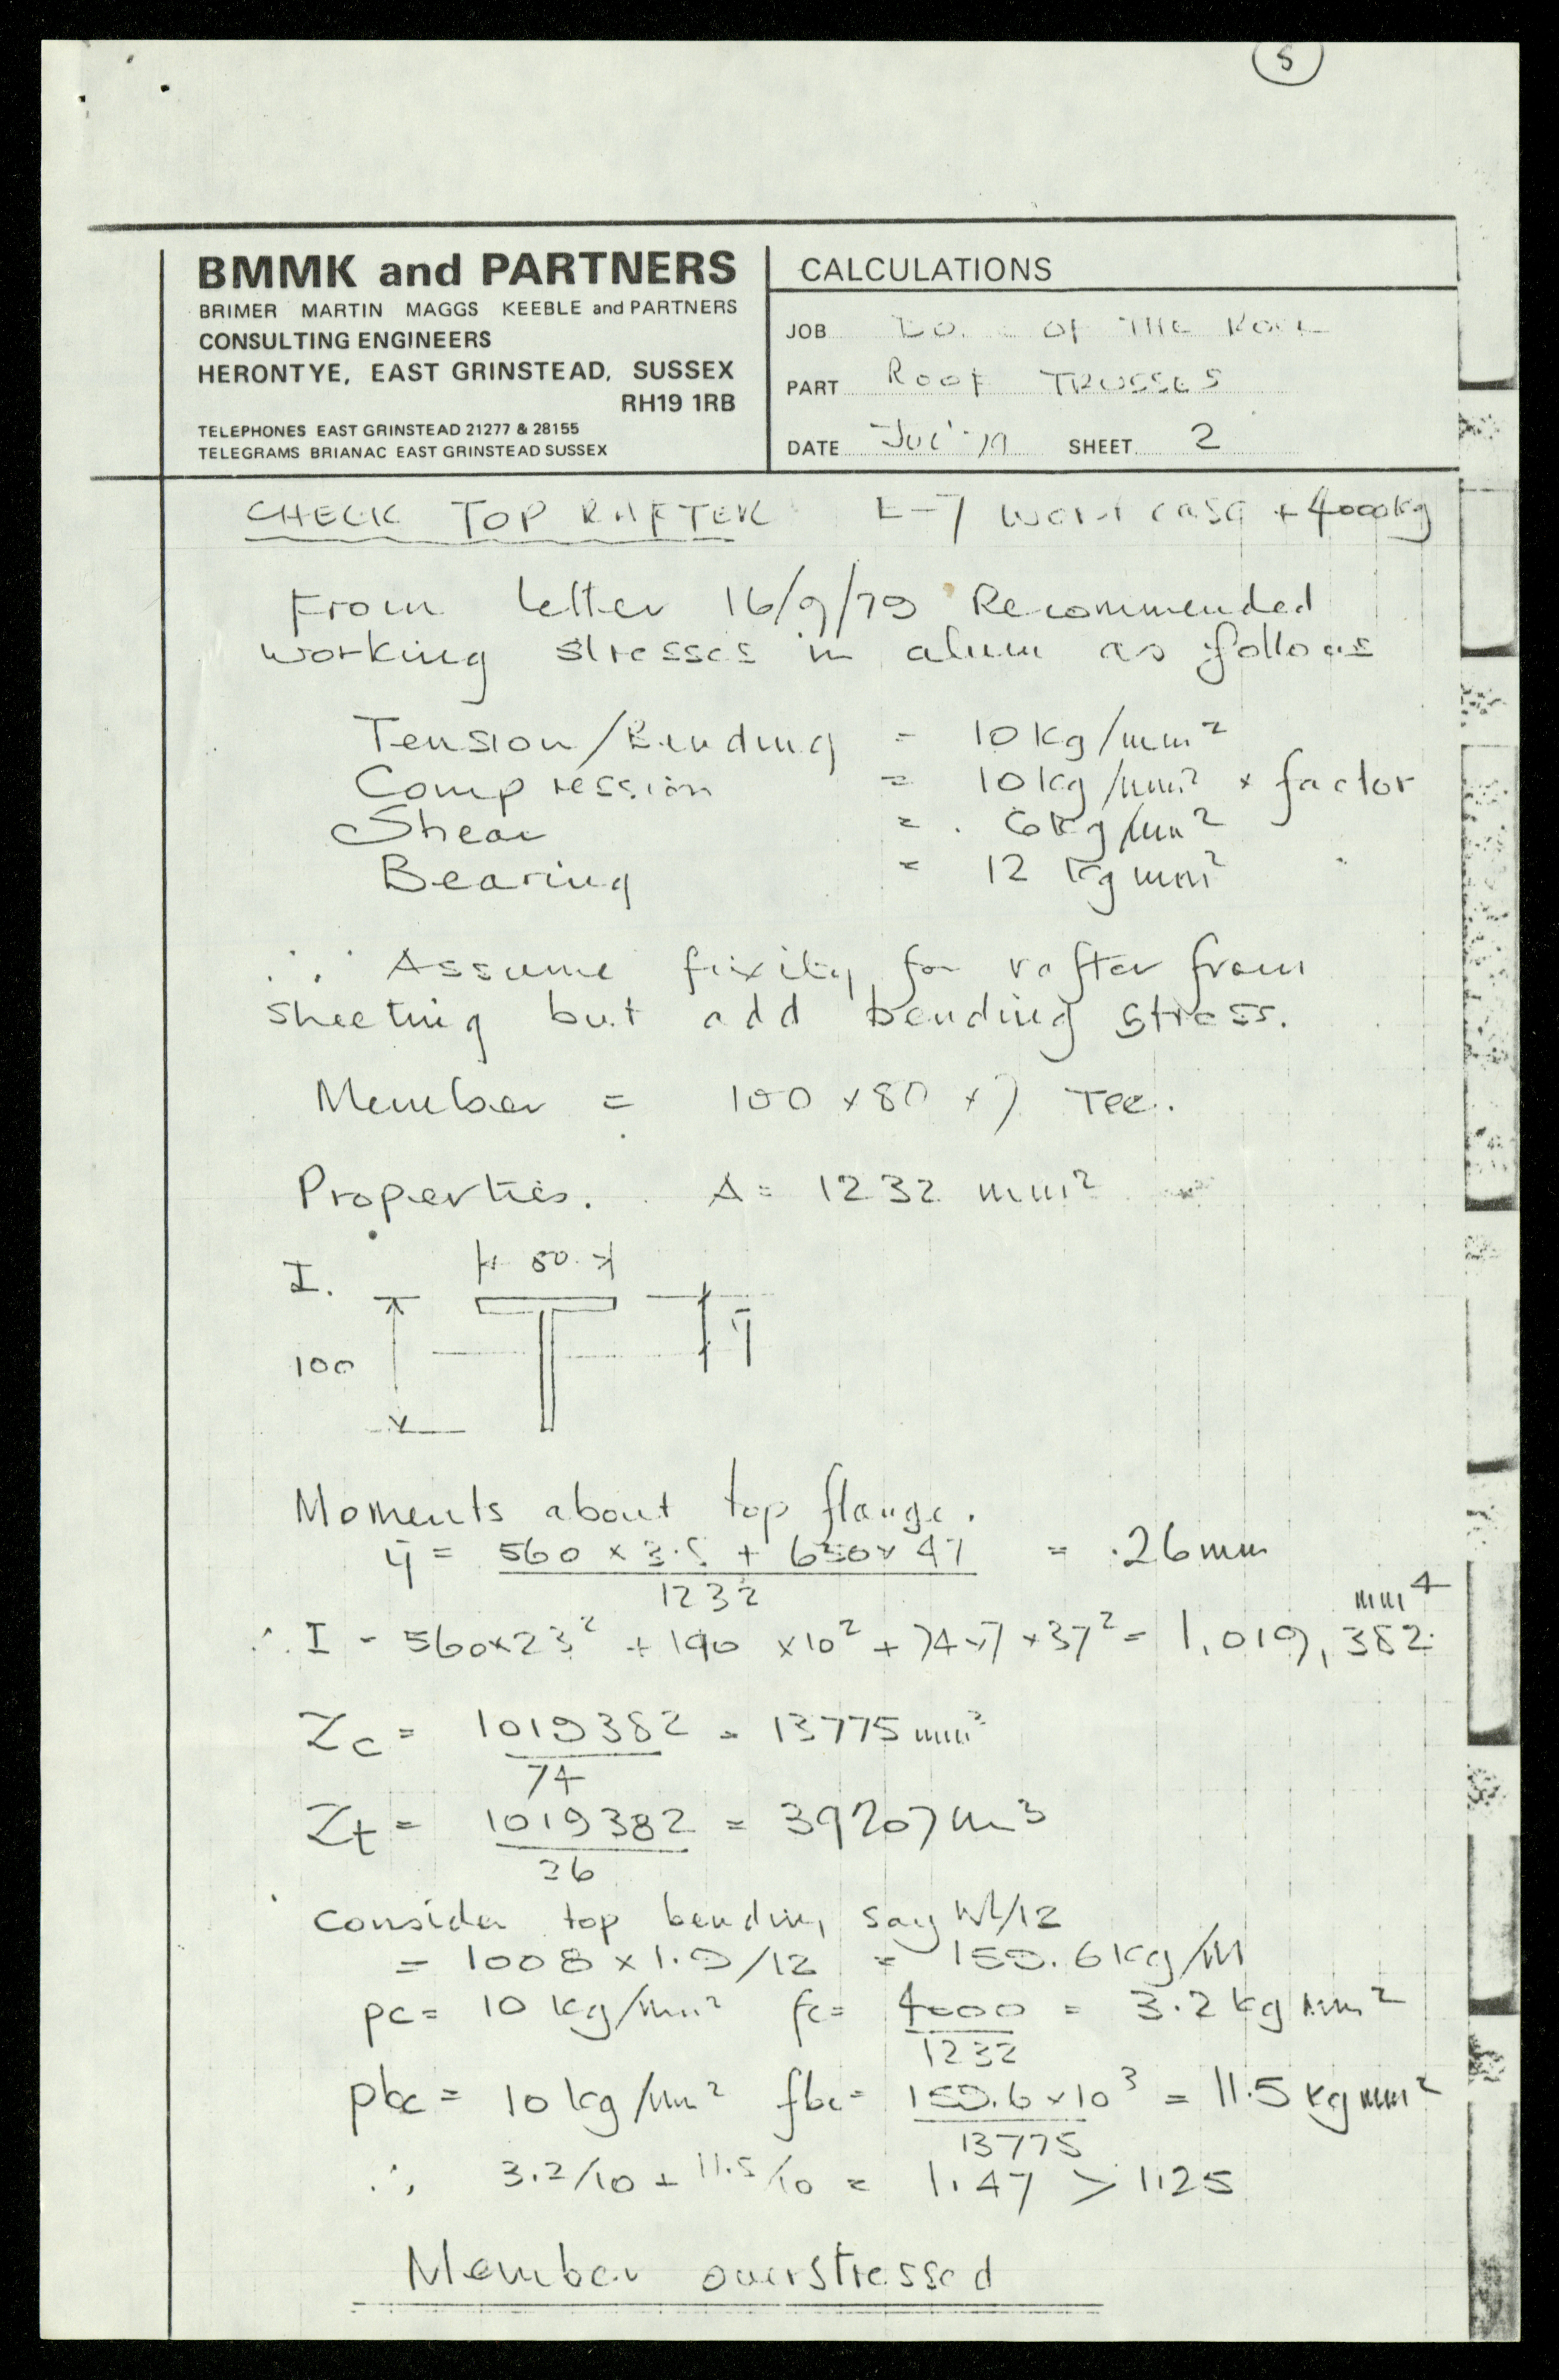 5
BMMK and PARTNERS
BRIMER MARTIN MAGGS KEEBLE and PARTNERS
CONSULTING ENGINEERS
HERONTYE, EAST GRINSTEAD, SUSSEX
RH19 1RB
TELEPHONES EAST GRINSTEAD 21277 & 28155
TELEGRAMS BRIANAC EAST GRINSTEAD SUSSEX
CALCULATIONS
JOB OF THE ROCK
PART ROOF TRUSSES
DATE SHEET 2
CHECK TOP RAFTER E-7 Worst case + 4000kg
From letter 16/9/79 Recommended
working stresses in alum as follows
Tension/Bending = 10 kg/mm²
Compression = 10 kg/mm² x factor
Shear = 6kg/mm²
Bearing = 12 kg mm²
∴ Assume fixity for rafter from
sheeting but add bending stress.
Member = 100 x 80 x 7 Tee.
Properties. A = 1232 mm²
I.
80
100
ȳ
Moments about top flange.
ȳ = 560 x 3.5 + 650 x 47 = 26mm
1232
mm⁴
∴ I = 560x23² + 190 x10² + 74x7 x37² = 1,019,382
Zc = 1019382 = 13775 mm³
74
Zt = 1019382 = 39207 m³
26
consider top bending say Wl/12
= 1008 x 1.9/12 = 159.6 kg/M
pc = 10 kg/mm² fc = 4000 = 3.2 kg mm²
1232
pbc = 10 kg/mm² fbc = 159.6 x 10³ = 11.5 kg mm²
13775
∴ 3.2/10 + 11.5/10 = 1.47 > 1.25
Member overstressed